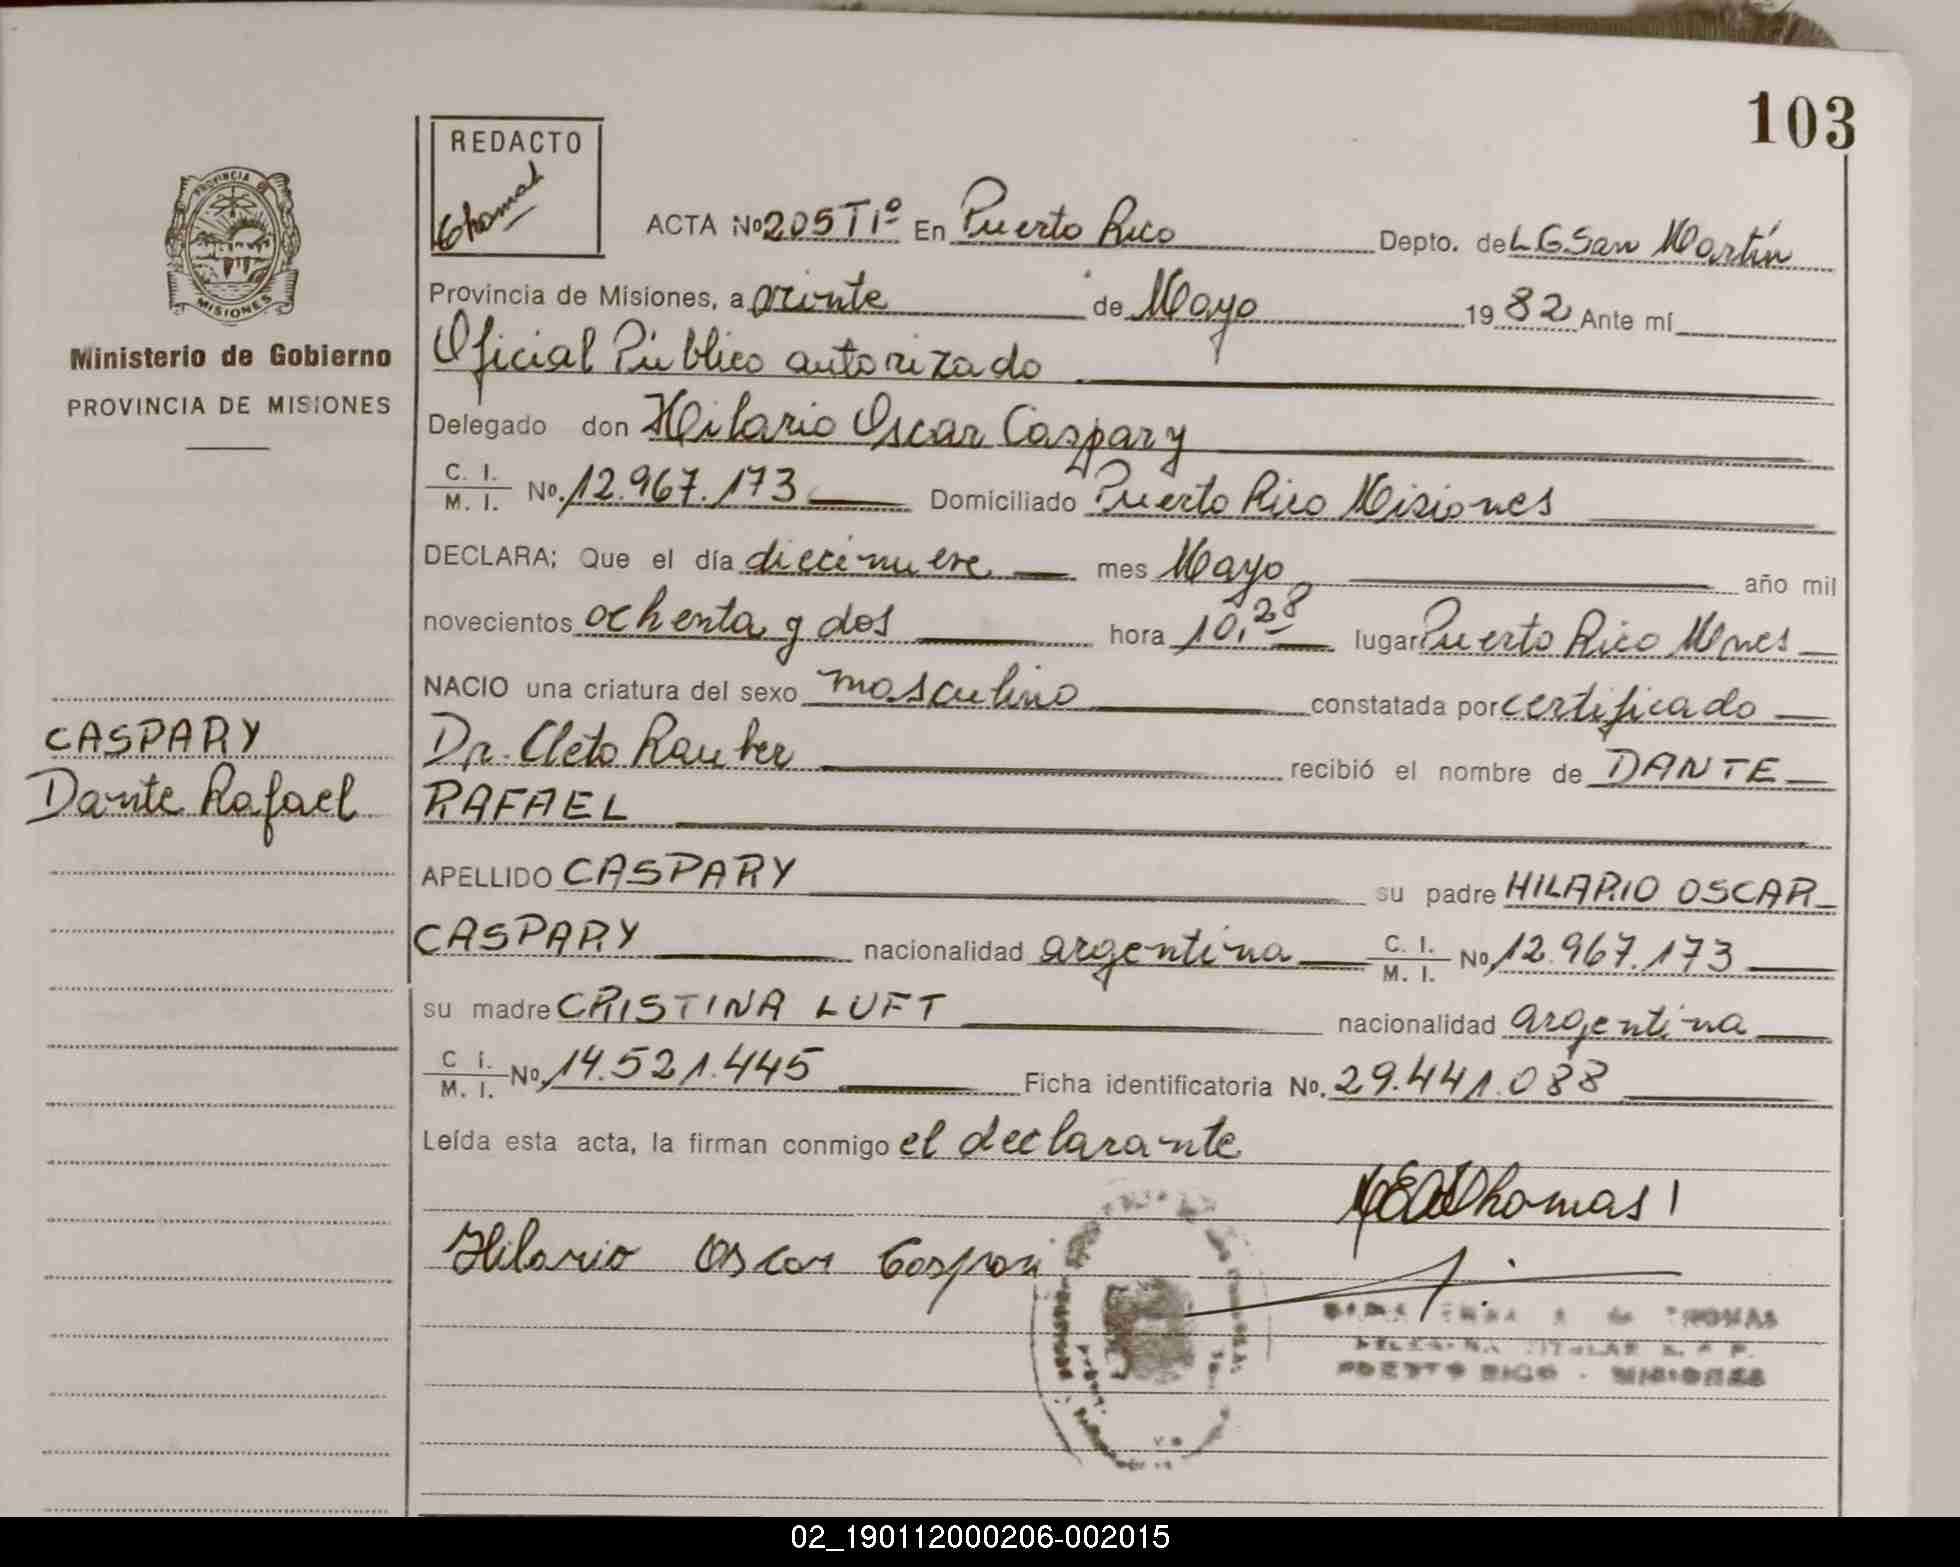 103
REDACTO
Thomas
ACTA No 205 T1º En Puerto Rico Depto. de L G San Martín
Provincia de Misiones, a veinte de Mayo 19 82 Ante mí
Oficial Público autorizado
Delegado don Hilario Oscar Caspary
C. I.
M. I. No. 12.967.173 Domiciliado Puerto Rico Misiones
DECLARA; Que el día diecinueve mes Mayo año mil
novecientos ochenta y dos hora 10,28 lugar Puerto Rico Mnes
NACIO una criatura del sexo masculino constatada por certificado
Dr. Cleto Rauber recibió el nombre de DANTE
RAFAEL
APELLIDO CASPARY su padre HILARIO OSCAR
CASPARY nacionalidad argentina C. I.
M. I. No 12.967.173
su madre CRISTINA LUFT nacionalidad argentina
C I.
M. I. No. 14.521.445 Ficha identificatoria No. 29.441.088
Leída esta acta, la firman conmigo el declarante
Thomas
Hilario Oscar Caspary
THOMAS
TITULAR
PUERTO RICO - MISIONES
PROVINCIA DE
MISIONES
Ministerio de Gobierno
PROVINCIA DE MISIONES
CASPARY
Dante Rafael
02_190112000206-002015